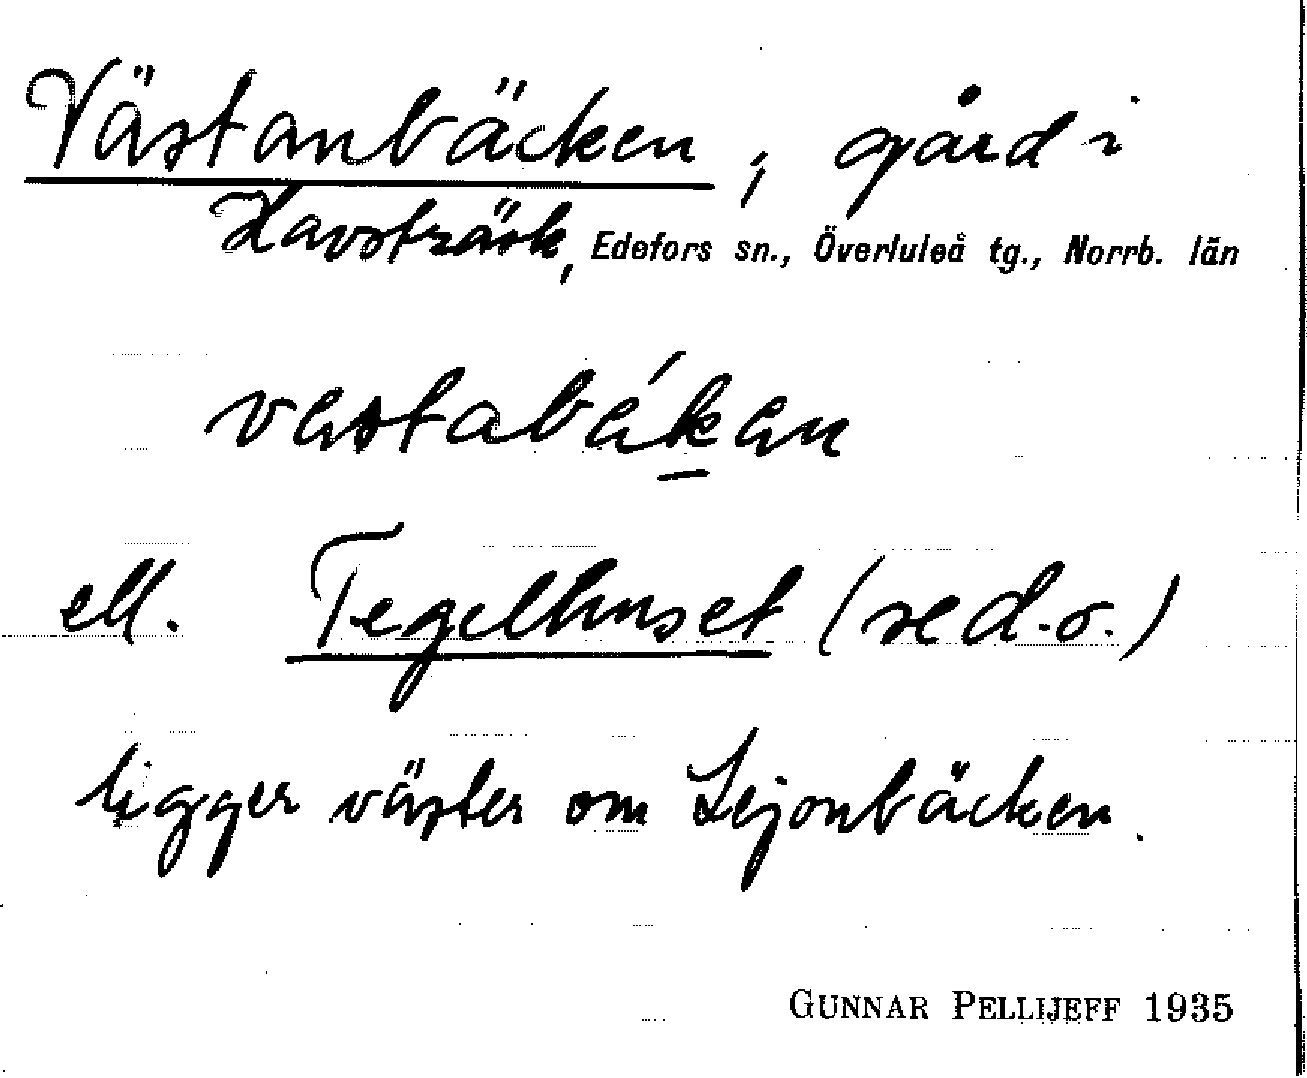 Västanbäcken, gård i
Havsträsk, Edefors sn., Överluleå tg., Norrb. län
vastabák̲an
ell. Tegelhuset (se d.o.)
ligger väster om Lejonbäcken.
GUNNAR PELLIJEFF 1935